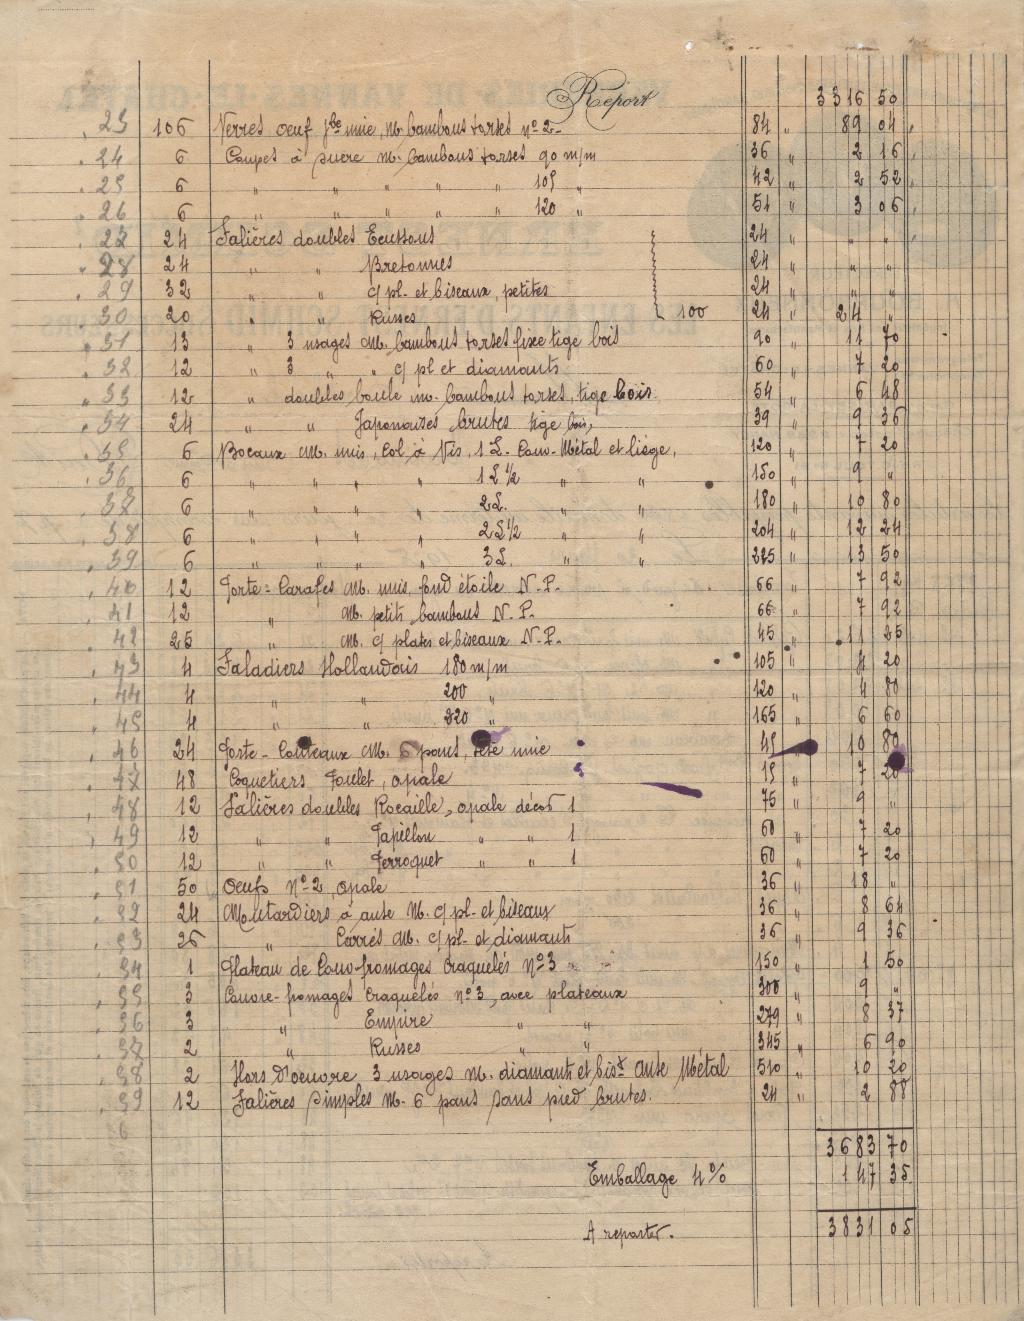 Report 3316 50
23 106 Verres oeuf jbe unie, M. bambous torses no 2 - 84 " 89 04
24 6 Coupes à sucre M. bambous torses 90 m/m 36 " 2 16
25 6 " " " " " 105 " 42 " 2 52
26 6 " " " " " 120 " 51 " 3 06
27 24 Salières doubles Ecussons 24 " " "
28 24 " " Bretonnes 24 " " "
29 32 " " c/ pl. et biseaux, petites 24 " " "
30 20 " " Russes 100 24 " 24 "
31 13 " 3 usages M. bambous torses fixe tige bois 90 " 11 70
32 12 " 3 " " c/ pl et diamants 60 " 7 20
33 12 " doubles boule M. bambous torses, tige bois 54 " 6 48
34 24 " " Japonaises brutes tige bois, 39 " 9 36
35 6 Bocaux M. unis, Col à Vis, 1 L. Couv-Métal et liège, 120 " 7 20
36 6 " " " " 1 L ½ " " 150 " 9 "
37 6 " " " " 2 L. " " 180 " 10 80
38 6 " " " " 2 L ½ " " 204 " 12 24
39 6 " " " " 3 L. " " 225 " 13 50
40 12 Porte-Carafes M. unis fond étoile N.P. 66 " 7 92
41 12 " M. petits bambous N.P. 66 " 7 92
42 25 " M. c/ plates et biseaux N.P. 45 " 11 25
43 4 Saladiers Hollandais 180 m/m 105 " 4 20
44 4 " " 200 " 120 " 4 80
45 4 " " 220 " 165 " 6 60
46 24 Porte-Couteaux M. 6 pans, tête unie 45 " 10 80
47 48 Coquetiers Poulet, opale 15 " 7 20
48 12 Salières doubles Rocaille, opale décor 1 75 " 9 "
49 12 " " Papillon " " 1 60 " 7 20
50 12 " " Perroquet " " 1 60 " 7 20
51 50 Oeufs No 2, opale 36 " 18 "
52 24 Moutardiers à ante M. c/ pl. et biseaux 36 " 8 64
53 26 " Carrés M. c/ pl. et diamants 36 " 9 36
54 1 Plateau de Couv-fromages Craquelés No 3 150 " 1 50
55 3 Couvre-fromages Craquelés no 3, avec plateaux 300 " 9 "
56 3 " Empire " " 279 " 8 37
57 2 " Russes " " 345 " 6 90
58 2 Hors d'oeuvre 3 usages M. diamants et bisx ante Métal 510 " 10 20
59 12 Salières simples M. 6 pans sans pied brutes. 24 " 2 88
3683 70
Emballage 4 % 147 35
A reporter. 3831 05